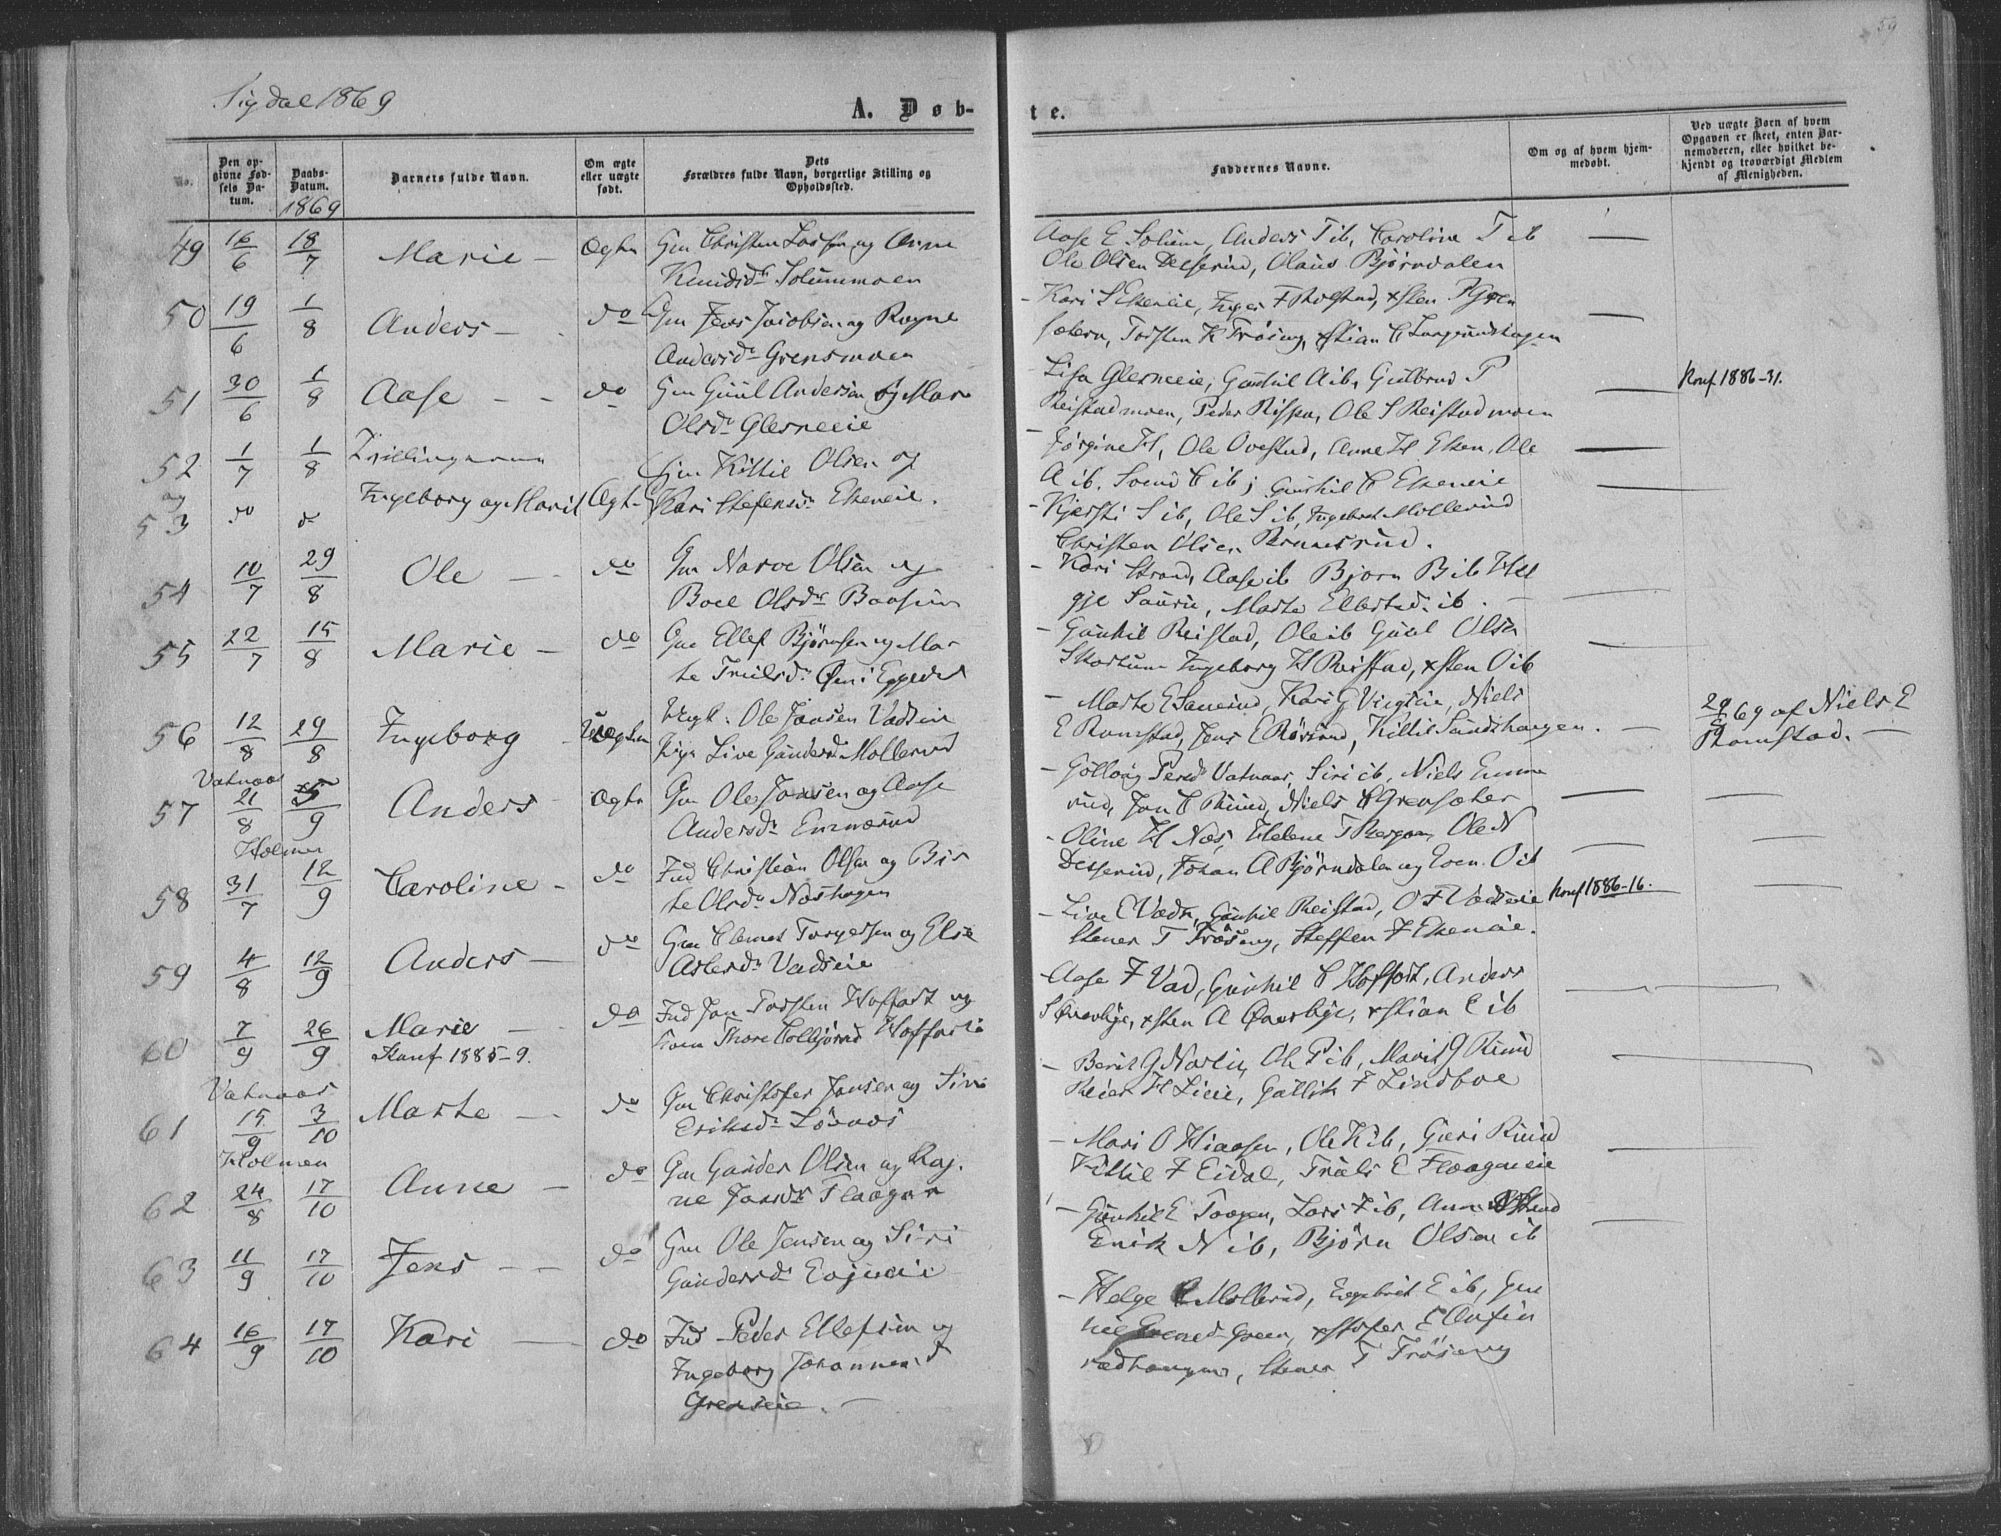 59
Sigdal 1869
A. Døb-
te.
No.
Den op-
givne Fød-
sels Da-
tum.
Daabs-
Datum.
1869
Barnets fulde Navn.
Om ægte
eller uægte
født.
Dets
Forældres fulde Navn, borgerlige Stilling og
Opholdssted.
Faddernes Navne.
Om og af hvem hjem-
medøbt.
Ved uægte Børn af hvem
Opgaven er skeet, enten Bar-
nemoderen, eller hvilket be-
kjendt og troværdigt Medlem
af Menigheden.
49 16/6 18/7 Marie — Ægte Gm Christen Larsen og Anne
Knudsdr Solummoen
Aase E Solum, Anders T ib, Caroline T ib
Ole Olsen Desserud, Olaus Bjørndalen
50 19/6 1/8 Anders — do Gm Jens Jacobsen og Ragne
Andersdr Grensmoen
Kari S Ekeneie, Inger F Rolstad, xsten P Gren
sætern, Torsten K Trøseng, xstian C
51 30/6 1/8 Aase — do Gm Guul Andersen og Mar
Olsdr Glesneeie
Lisa Glesneeie, Gunhil A ib, Gulbrand P
Reistadmoen, Peder Rispa, Ole S Reistadmoen
Konf. 1886-31.
52 1/7 1/8 Tvillingerne
og Ingeborg og Marit Ægte
53 do do
Gm Kittil Olsen og
Kari Stefensdr Ekeneie.
Jørgine H, Ole Ovestad, Anne H Eken, Ole
A ib. Svend C ib; Gunhil C Ekeneie
Kjersti S ib, Ole S ib, Ingebret Mollerud
Christen Olsen Brunesrud.
54 10/7 29/8 Ole — do Gm Narve Olsen og
Boel Olsdr Baasum
Kari Strand, Aase ib Bjørn B ib Hel
gje Saurin, Marte Ellestad ib.
55 22/7 15/8 Marie — do Gm Ellef Bjørnsen og Mar
te Trulsdr Øen i Eggedal
Gunhil Reistad, Ole ib Guul Olsen
Skartum Ingeborg H Reistad, xsten O ib
56 12/8 29/8 Ingeborg Uægte Ungk. Ole Jonsen Vadseie
Pige Live Gundersdr Mollerud
Marte E Saurud, Kari G, Niels
E Ramstad, Jens E Rørud, Kittil Sandshaugen.
29/8 69 af Niels E
Ramstad.
Vatnaas
57 21/8 5/9 Anders Ægte Gm Ole Jonsen og Aase
Andersdr Ennerud
Gollaug Persdr Vatnaas, Siri ib, Niels Enne
rud, Jon C Ruud, Niels Grensæter
Holmen
58 31/7 12/9 Caroline — do Ind Christian Olsen og Bir
te Olsdr Næshagen
Oline H Næs, Helene T Bergan, Ole N
Desserud, Johan A Bjørndalen og Even O ib
59 4/8 12/9 Anders — do Gm Clemet Torgersen og Else
Aslesdr Vadseie
Live E Vads, Gunhil Reistad, O F Vadseie
Stener T Trøseng, Steffen F Ekeneie.
Konf 1886-16.
60 7/9 26/9 Marie — do Ind Jon Torsten Hoffart og
Kone Thore Colbjørnsd Hoffart
Konf 1885-9.
Aase F Vad, Gunhil C Hoffart, Anders
S Ouverbye, xsten A Ouverbye, xstian E ib
Vatnaas
61 15/9 3/10 Marte — do Gm Christofer Jonsen og Siri
Eriksdr Løvnes
Berit G, Ole P ib, Marit G Ruud
Reier H Lieie, Gullik F Lindboe
Holmen
62 24/8 17/10 Anne — do Gm Gunder Olsen og Rag-
ne Jonsdr Flaagan
Mari O Hiaasen, Ole K ib, Guri Ruud
Kittil F Eidal, Truls E Flaagneie
63 11/9 17/10 Jens — do Gm Ole Jensen og Siri
Gundersdr
Gunhil E, Lars F ib, Anne Strand
Erik N ib, Bjørn Olsen ib
64 16/9 17/10 Kari — do Ind Peder Ellefsen og
Ingeborg Johannesd
Grenseie.
Helge Mollerud, Engebret E ib, Gun
hil Green, xstofer E
rødhaugen, Stener T Trøseng